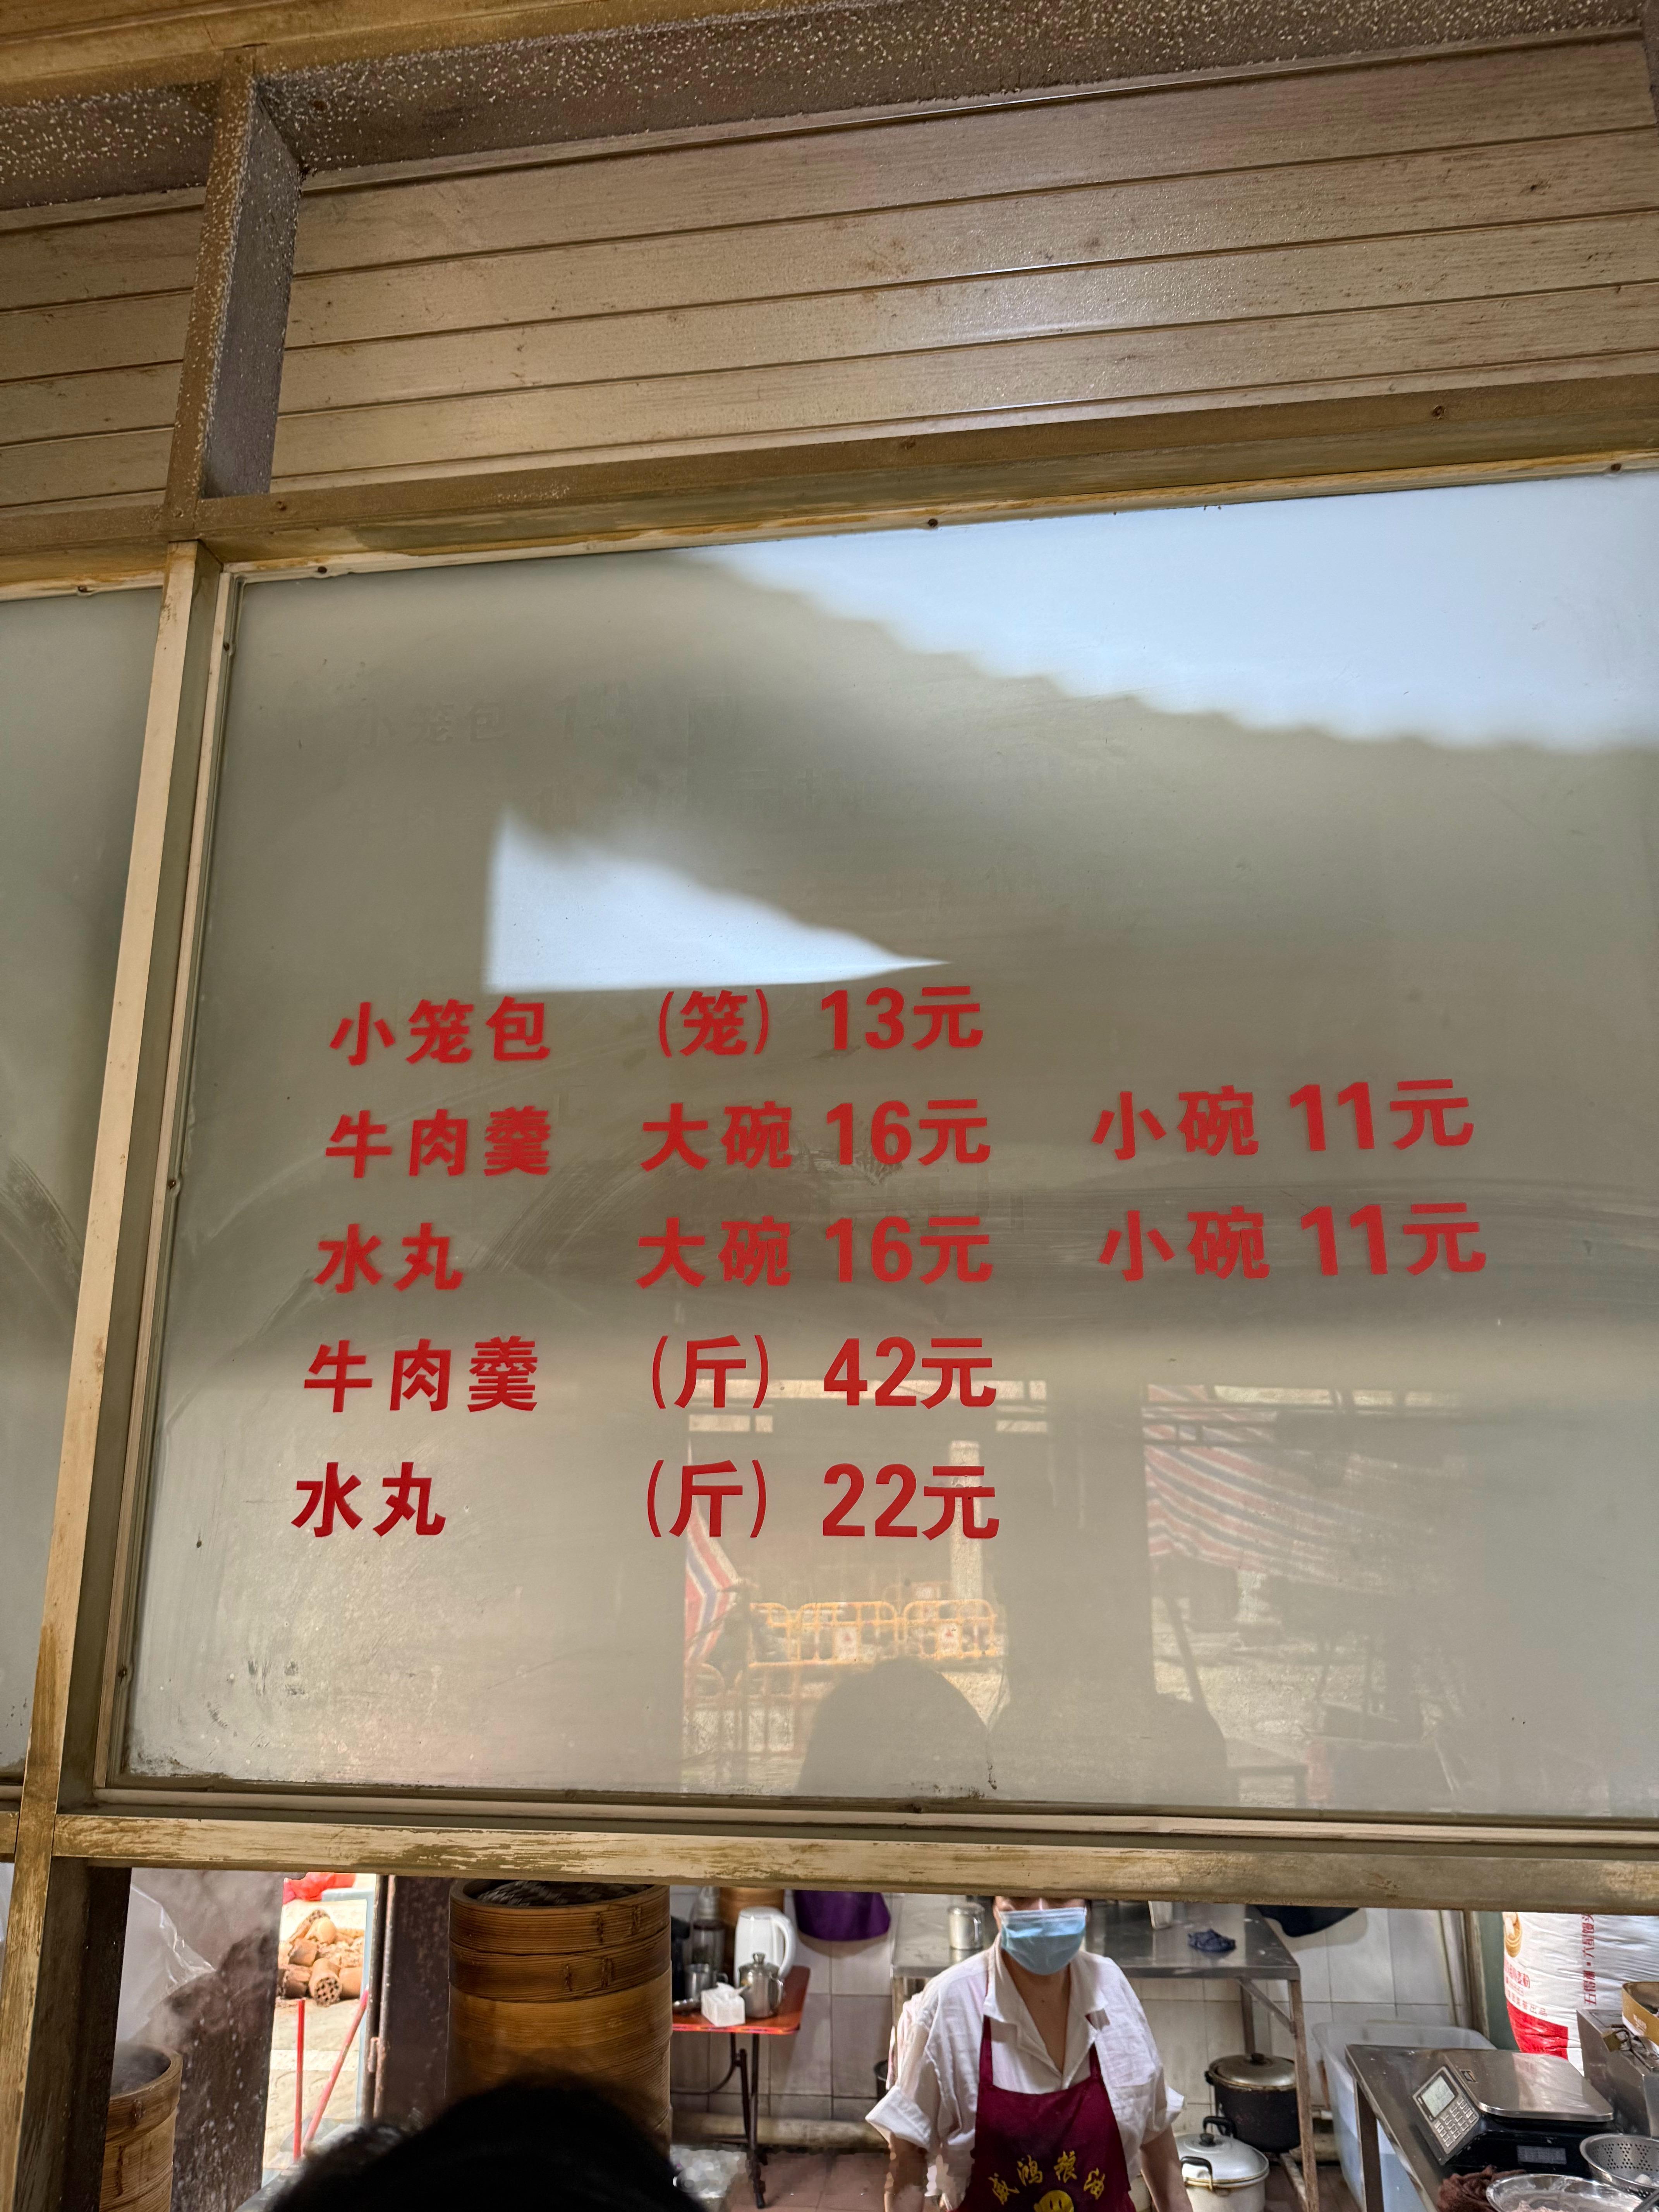 小笼包
小笼包 (笼) 13元
牛肉羹 大碗 16元 小碗 11元
水丸 大碗 16元 小碗 11元
牛肉羹 (斤) 42元
水丸 (斤) 22元
威鸿粮油